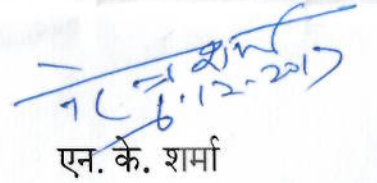 शर्मा
6.12.2017
एन. के. शर्मा